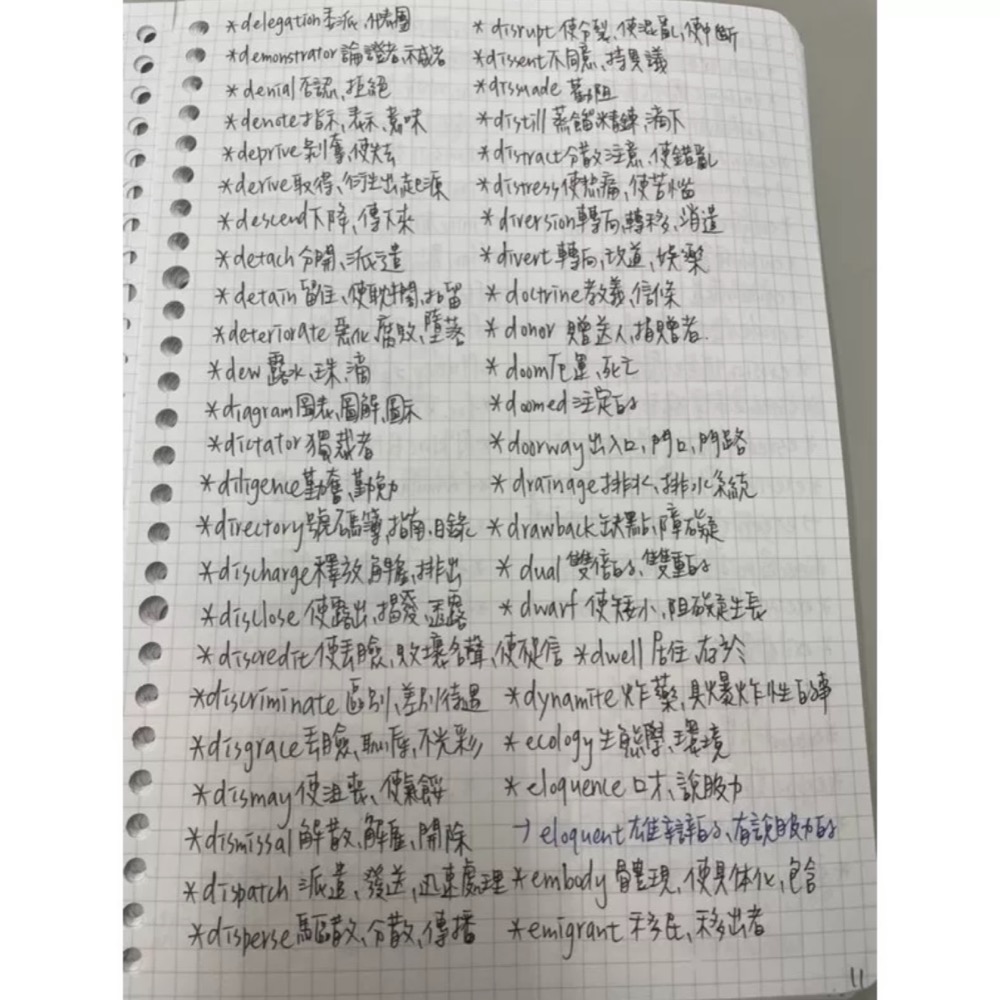 *delegation委派、代表團
*demonstrator論證者、示威者
*denial否認、拒絕
*denote指示、表示、意味
*deprive剝奪、使失去
*derive取得、衍生出、起源
*descend下降、傳下來
*detach分開、派遣
*detain留住、使耽擱、扣留
*deteriorate惡化、腐敗、墮落
*dew露水、珠、滴
*diagram圖表、圖解、圖示
*dictator獨裁者
*diligence勤奮、勤勉
*directory號碼簿、指南、目錄
*discharge釋放、解雇、排出
*disclose使露出、揭發、透露
*discredit使丟臉、敗壞名聲、使疑信
*discriminate區別、差別待遇
*disgrace丟臉、恥辱、不光彩
*dismay使沮喪、使氣餒
*dismissal解散、解雇、開除
*dispatch派遣、發送、迅速處理
*disperse驅散、分散、傳播
*disrupt使分裂、使混亂、使中斷
*dissent不同意、持異議
*dissuade勸阻
*distill蒸餾、精鍊、滴下
*distract分散注意、使錯亂
*distress使悲痛、使苦惱
*diversion轉向、轉移、消遣
*divert轉向、改道、娛樂
*doctrine教義、信條
*donor贈送人、捐贈者
*doom厄運、死亡
*doomed注定的
*doorway出入口、門口、門路
*drainage排水、排水系統
*drawback缺點、障礙
*dual雙倍的、雙重的
*dwarf使矮小、阻礙生長
*dwell居住、存於
*dynamite炸藥、具爆炸性的事
*ecology生態學、環境
*eloquence口才、說服力
→eloquent雄辯的、有說服力的
*embody體現、使具体化、包含
*emigrant移民、移出者
11